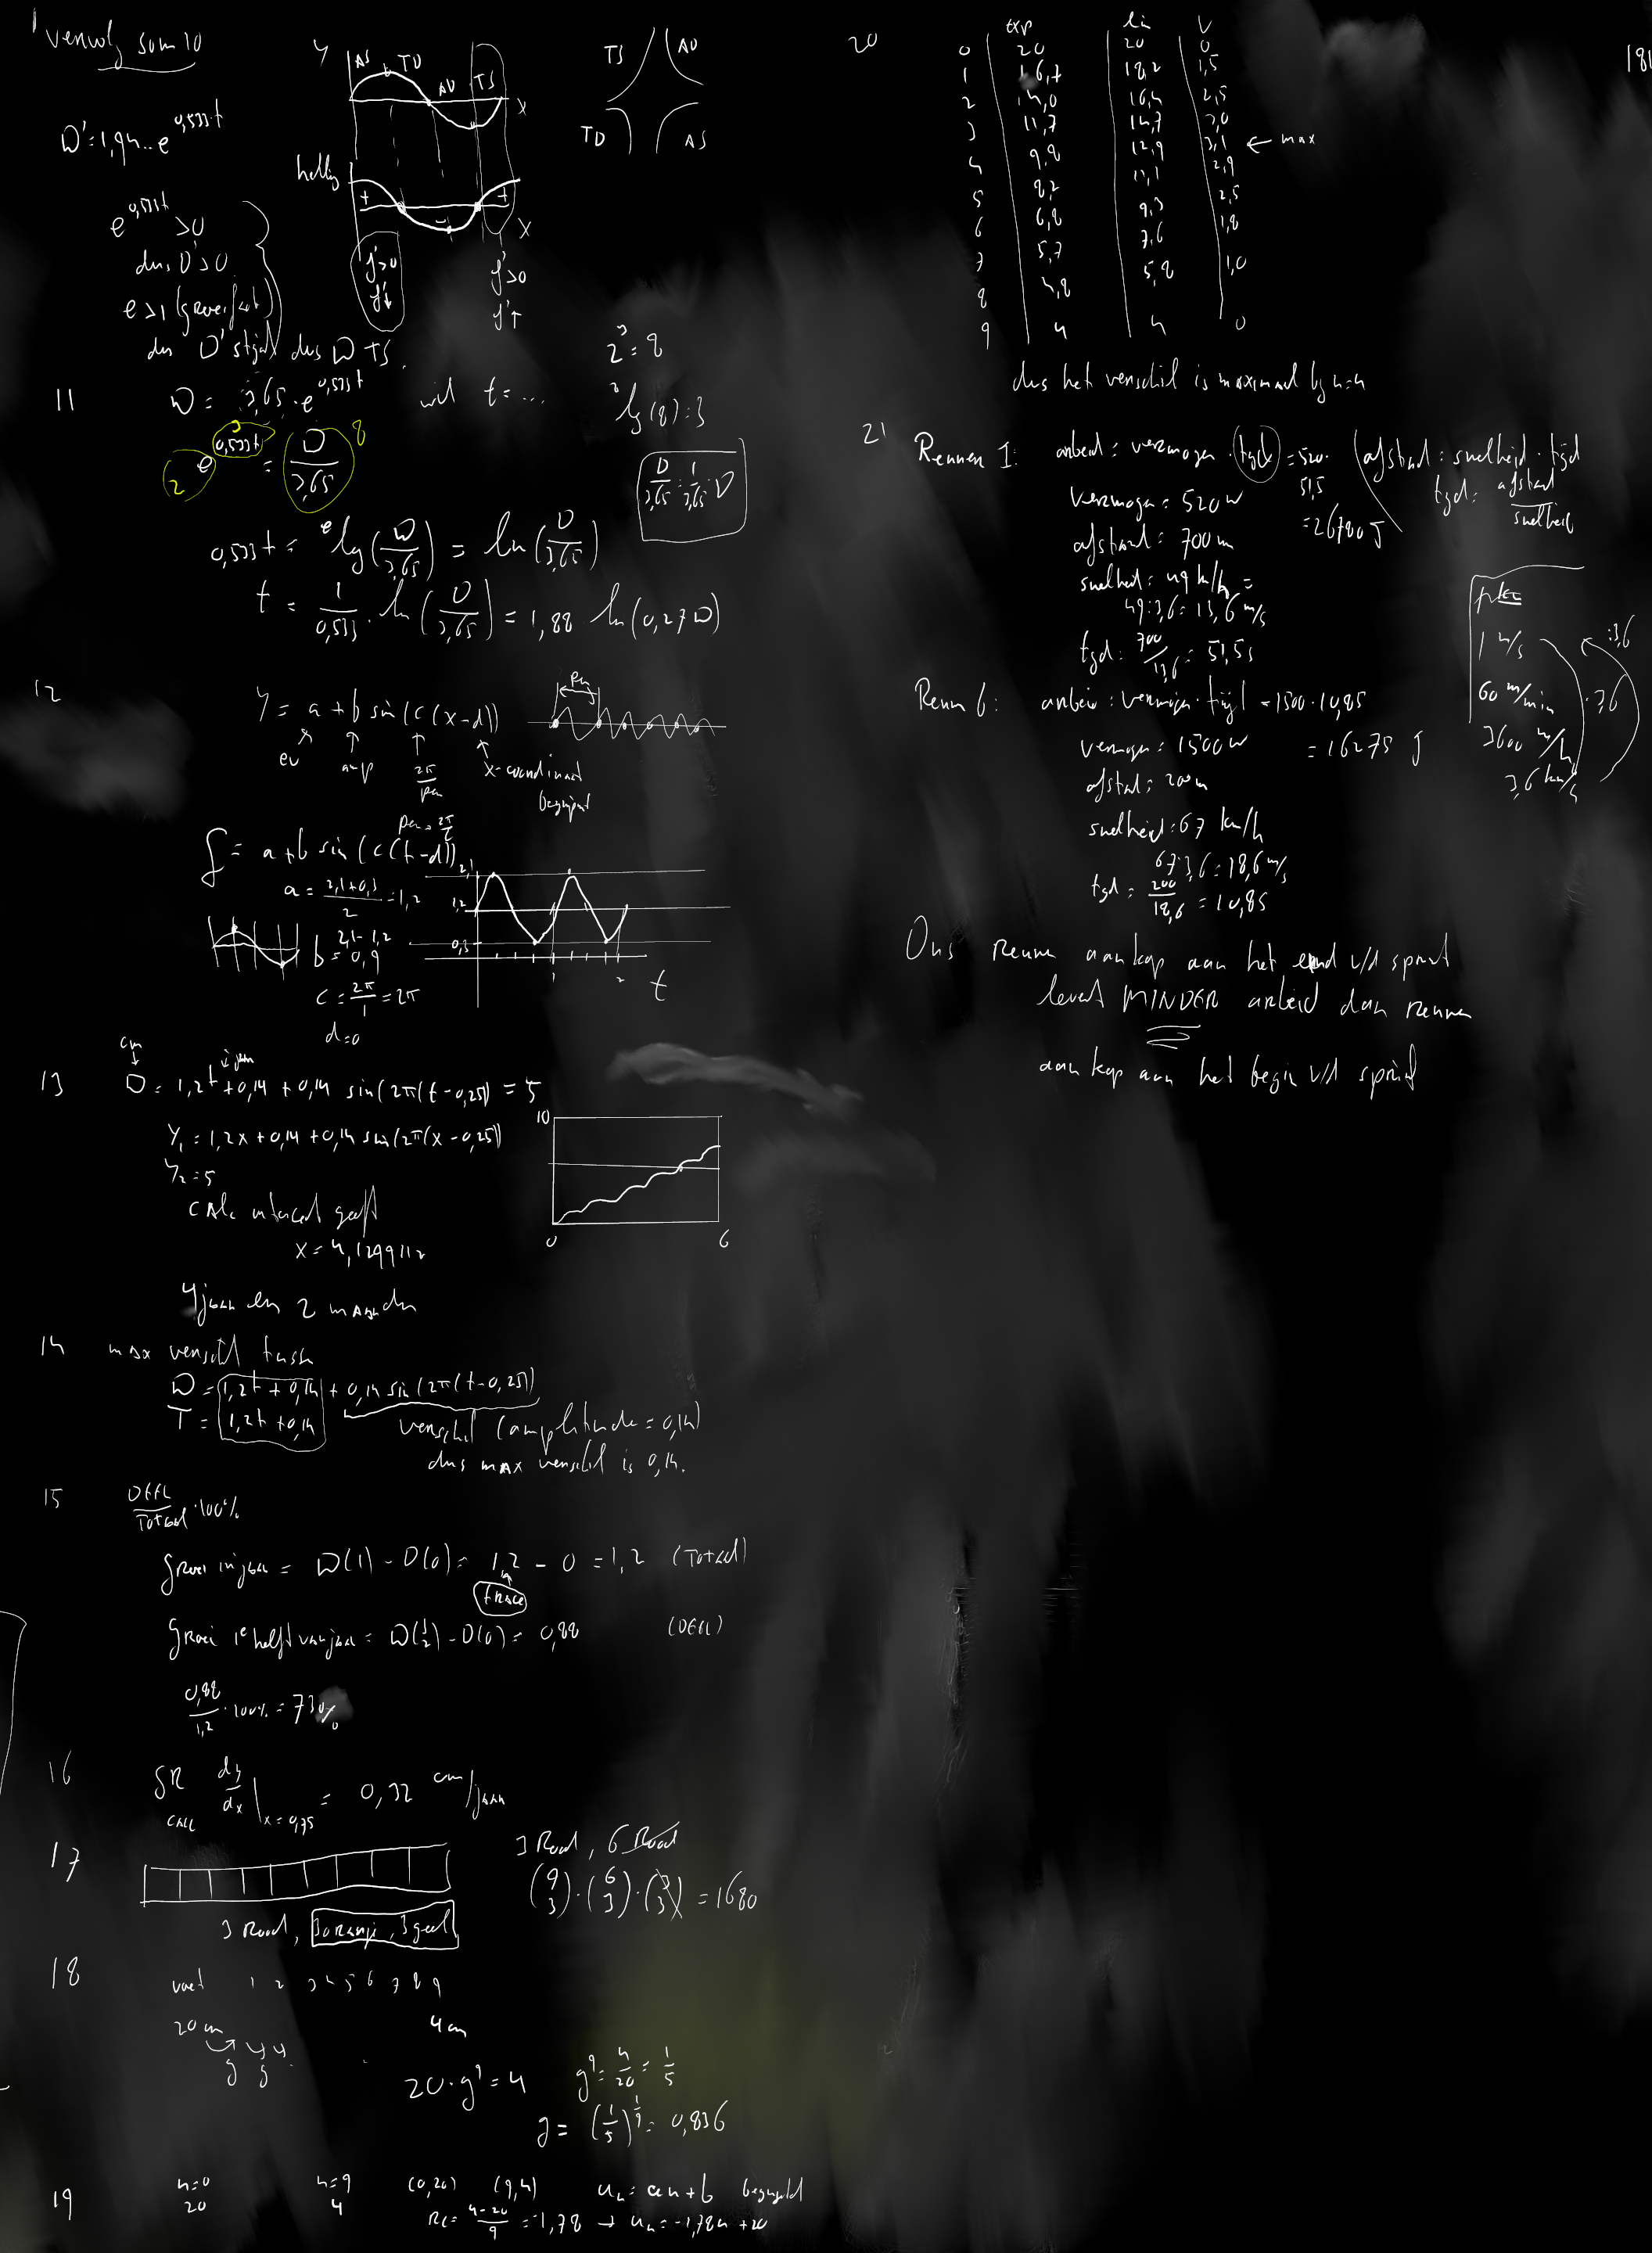 vervolg som 10
D' = 1,94... e^0,533t
e^0,533t > 0
dus D' > 0
e > 1 (groeifact)
dus D' stijgt dus D TS.
y
AS TD AD TS
x
helling
+ - +
x
f' > 0
f' ↓
f' > 0
f' ↑
TS AD
TD AS
11
D = 3,65 · e^0,533t wil t = ...
2³ = 8
²log(8) = 3
e^0,533t = D/3,65
2 3 8
D/3,65 = 1/3,65 · D
0,533t = ᵉlog(D/3,65) = ln(D/3,65)
t = 1/0,533 · ln(D/3,65) = 1,88 ln(0,27D)
12
y = a + b sin(c(x-d))
ev amp 2π/per x-coordinaat
beginpunt
per
per = 2π/c
f = a + b sin(c(t-d))
a = (2,1+0,3)/2 = 1,2
2,1 - 1,2
b = 0,9
c = 2π/1 = 2π
d = 0
2,1
1,2
0,3
1 2 t
13
cm
D = 1,2t + 0,14 + 0,14 sin(2π(t-0,25)) = 5
y₁ = 1,2x + 0,14 + 0,14 sin(2π(x-0,25))
y₂ = 5
calc intersect geeft
x = 4,1299112
4 jaar en 2 maanden
10
0 6
14
max verschil tussen
D = 1,2t + 0,14 + 0,14 sin(2π(t-0,25))
T = 1,2t + 0,14
verschil (amplitude = 0,14)
dus max verschil is 0,14.
15
DEEL/TOTaal · 100%
groei in jaar = D(1) - D(0) = 1,2 - 0 = 1,2 (Totaal)
trace
groei 1e helft van jaar = D(½) - D(0) = 0,88 (DEEL)
0,88/1,2 · 100% = 73%
16
GR dy/dx | x=0,75 = 0,32 cm/jaar
calc
17
3 Rood, 3 oranje, 3 geel
3 Rood, 6 Rood
(9 3) · (6 3) · (3 3) = 1680
18
voet 1 2 3 4 5 6 7 8 9
20 cm 4 cm
g g
20 · g⁹ = 4
g⁹ = 4/20 = 1/5
g = (1/5)^1/9 = 0,836
19
n=0 n=9 (0,20) (9,4) uₙ = an + b begingetal
20 4 RC = (4-20)/9 = -1,78 → uₙ = -1,78n + 20
20
exp lin V
0 20 20 0
1 16,7 18,2 1,5
2 14,0 16,4 2,5
3 11,7 14,7 3,0
4 9,8 12,9 3,1 ← max
5 8,2 11,1 2,9
6 6,8 9,3 2,5
7 5,7 7,6 1,8
8 4,8 5,8 1,0
9 4 4 0
dus het verschil is maximaal bij n=4
21
Renner 1: arbeid = vermogen · tijd = 520 ·
51,5
= 26780 J
afstand = snelheid · tijd
tijd = afstand/snelheid
vermogen = 520 W
afstand = 700 m
snelheid = 49 km/h =
49 : 3,6 = 13,6 m/s
tijd = 700/13,6 = 51,5 s
1 m/s
60 m/min
3600 m/h
3,6 km/h
:3,6
·3,6
Renner 6: arbeid = vermogen · tijd = 1500 · 10,85
= 16275 J
vermogen = 1500 W
afstand = 200 m
snelheid = 67 km/h
67 : 3,6 = 18,6 m/s
tijd = 200/18,6 = 10,85
Dus Renner aan kop aan het eind v/d sprint
levert MINDER arbeid dan renner
aan kop aan het begin v/d sprint